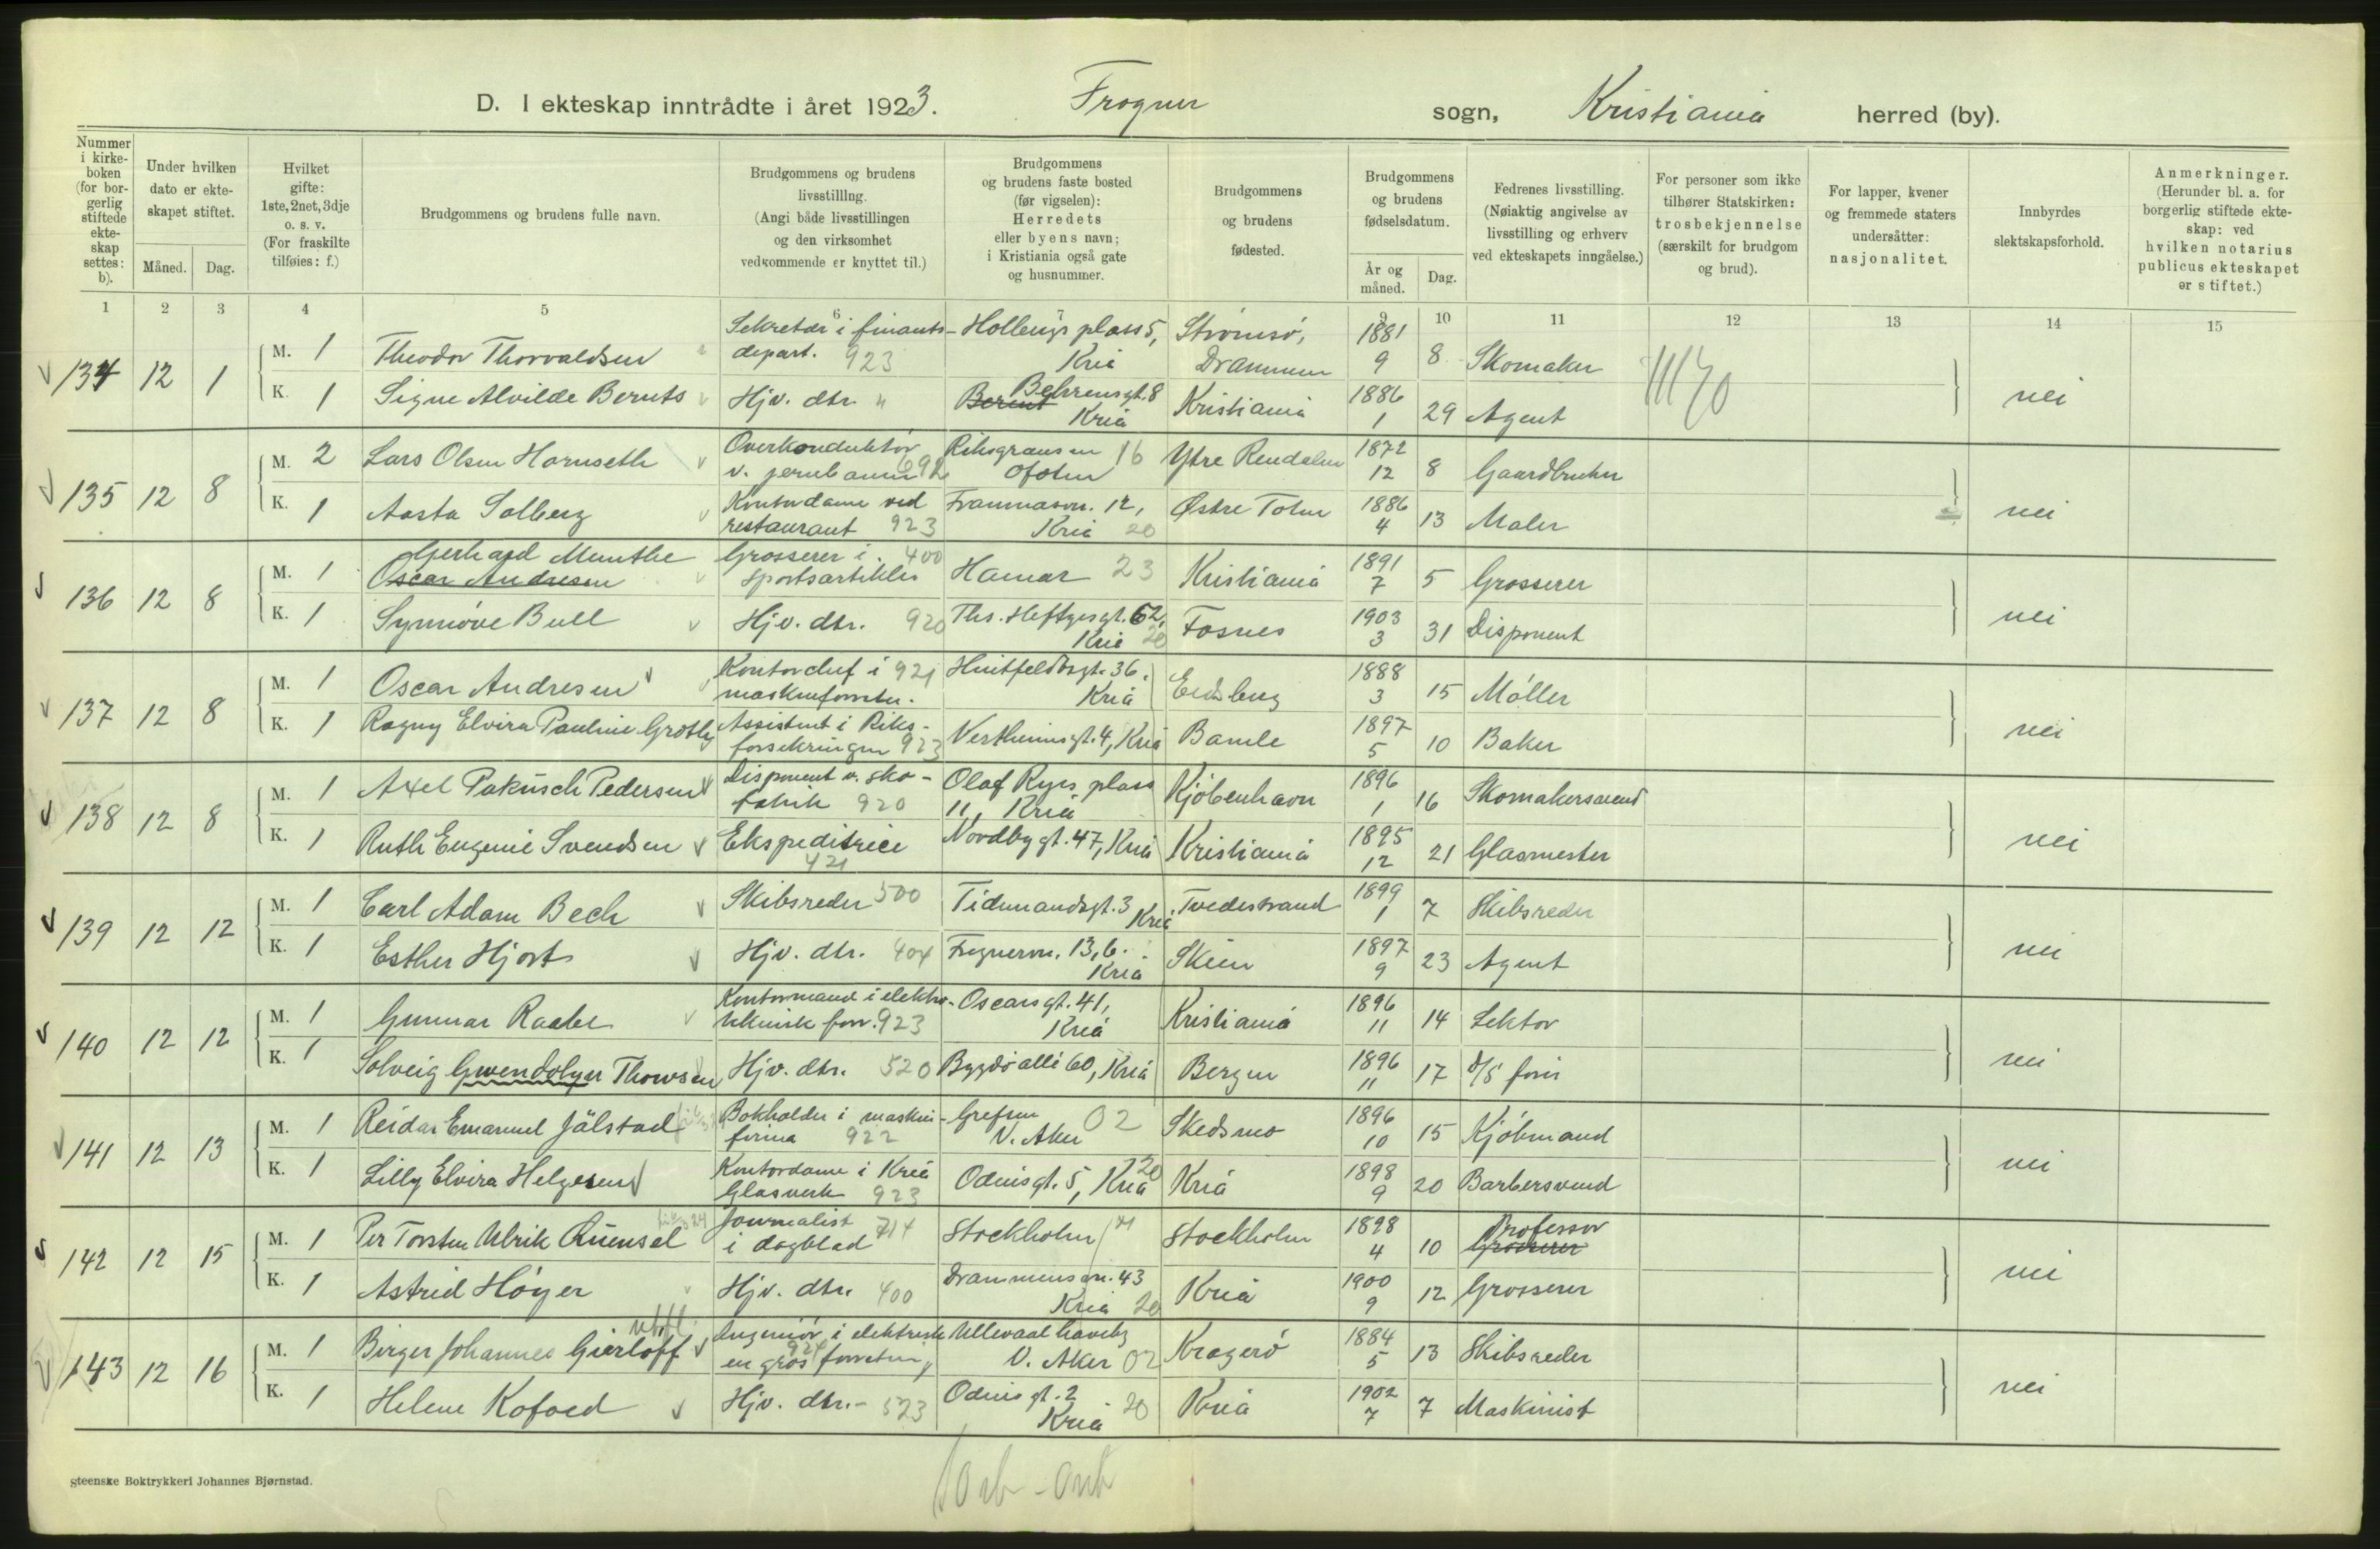 D. I ekteskap inntrådte i året 1923. Frogner sogn, Kristiania herred (by).
Nummer i kirkeboken (for borgerlig stiftede ekteskap settes: b).
Under hvilken dato er ekteskapet stiftet.
Måned. Dag.
Hvilket gifte: 1ste, 2net, 3dje o. s. v. (For fraskilte tilføies: f.)
Brudgommens og brudens fulle navn.
Brudgommens og brudens livsstilling. (Angi både livsstillingen og den virksomhet vedkommende er knyttet til.)
Brudgommens og brudens faste bosted (før vigselen): Herredets eller byens navn; i Kristiania også gate og husnummer.
Brudgommens og brudens fødested.
Brudgommens og brudens fødselsdatum.
År og måned. Dag.
Fedrenes livsstilling. (Nøiaktig angivelse av livsstilling og erhverv ved ekteskapets inngåelse.)
For personer som ikke tilhører Statskirken: trosbekjennelse (særskilt for brudgom og brud).
For lapper, kvener og fremmede staters undersåtter: nasjonalitet.
Innbyrdes slektskapsforhold.
Anmerkninger. (Herunder bl. a. for borgerlig stiftede ekteskap: ved hvilken notarius publicus ekteskapet er stiftet.)
1 2 3 4 5 6 7 9 10 11 12 13 14 15
134 12 1 M. 1 Theodor Thorvaldsen Sekretær i finants-depart. 923 Hollenys plass 5, Kria Strömsö, Drammen 1881 9 8 Skomaker nei
K. 1 Signe Alvilde Bernts Hjv. dtr. " Berent Behrensgt. 8 Kria Kristiania 1886 1 29 Agent
135 12 8 M. 2 Lars Olsen Hornseth Overkonduktör v. jernbanen 292 Riksgransen 16 Ofoten Ytre Rendalen 1872 12 8 Gaardbruker nei
K. 1 Aasta Solberg Kontordame ved restaurant 923 Frammason. 12, Kria 20 Østre Toten 1886 4 13 Maler
136 12 8 M. 1 Gerhard Munthe Oscar Andresen Grosserer i 400 sportsartikler Hamar 23 Kristiania 1891 7 5 Grosserer nei
K. 1 Synnöve Bull Hjv. dtr. 920 Ths. Heftyesgt. 62, Kria 20 Fosnes 1903 3 31 Disponent
137 12 8 M. 1 Oscar Andresen Kontorchef i 921 maskinforretn. Huitfeldtsgt. 36. Kria Eidsberg 1888 3 15 Möller nei
K. 1 Ragny Elvira Pauline Grotly Assistent i Riksforsikringen 923 Vertheimsgt. 4, Kria Bamle 1897 5 10 Baker
138 12 8 M. 1 Axel Pakusch Pedersen Disponent v. skofabrik 920 Olaf Ryes plass 11, Kria Kjöbenhavn 1896 1 16 Skomakersvend nei
K. 1 Ruth Eugenie Svendsen Ekspeditrice 421 Nordbygt. 47, Kria Kristiania 1895 12 21 Glasmester
139 12 12 M. 1 Carl Adam Bech Skibsreder 500 Tidemandsgt. 3 Kria Tvedestrand 1899 1 7 Skibsreder nei
K. 1 Esther Hjort Hjv. dtr. 404 Frognervn. 13,6. Kria Skien 1897 9 23 Agent
140 12 12 M. 1 Gunnar Raabe Kontormand i elektroteknisk forr. 923 Oscarsgt. 41, Kria Kristiania 1896 11 14 Lektor nei
K. 1 Solveig Gwendolyn Thowsen Hjv. dtr. 520 Bygdö allé 60, Kria Bergen 1896 11 17 d/s förer
141 12 13 M. 1 Reidar Emanuel Jälstad Bokholder i maskinfirma 922 Grefsen V. Aker 02 Skedsmo 1896 10 15 Kjöbmand nei
K. 1 Lilly Elvira Helgesen Kontordame i Kria Glasverk 923 Odinsgt. 5, Kria 20 Kria 1898 9 20 Barbersvend
142 12 15 M. 1 Per Torsten Ulrik Quensel Journalist i dagblad 714 Stockholm Stockholm 1898 4 10 Professor Grosserer nei
K. 1 Astrid Höyer Hjv. dtr. 400 Drammensvn. 43 Kria 20 Kria 1900 9 12 Grosserer
143 12 16 M. 1 Birger Johannes Gierlöff Ingeniör i elektrisk en gros forretning 921 Ullevaal haveby V. Aker 02 Kragerö 1884 5 13 Skibsreder nei
K. 1 Helene Kofoed Hjv. dtr. 523 Odinsgt. 2 Kria 20 Kria 1902 7 7 Maskinist
steenske Boktrykkeri Johannes Bjørnstad.